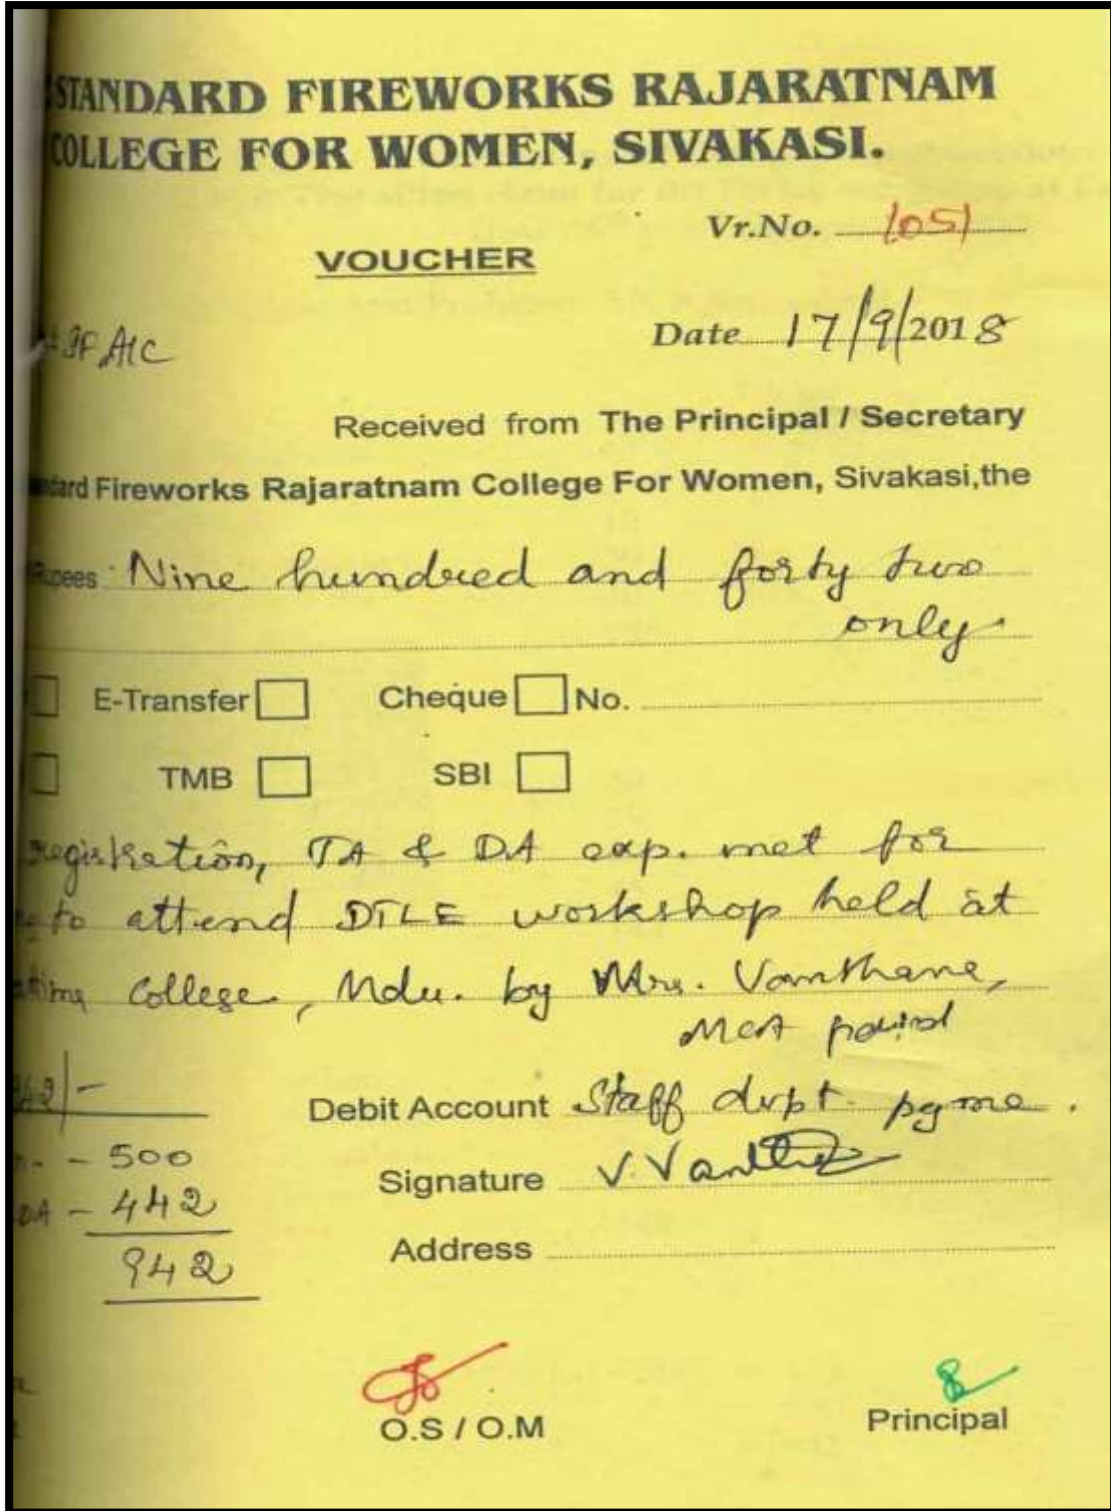 STANDARD FIREWORKS RAJARATNAM
COLLEGE FOR WOMEN, SIVAKASI.
Vr.No. 1051
VOUCHER
Date 17/9/2018
A/C
Received from The Principal / Secretary
Fireworks Rajaratnam College For Women, Sivakasi,the
Rupees Nine hundred and forty two
only.
E-Transfer Cheque No.
TMB SBI
registration, TA & DA exp. met for
to attend DTLE workshop held at
College, Mdu. by Mrs. Vanthana,
MCA
942/-
Debit Account Staff dvpt. pgme.
- 500
Signature V. Vantha
DA - 442
942
Address
O.S / O.M
Principal